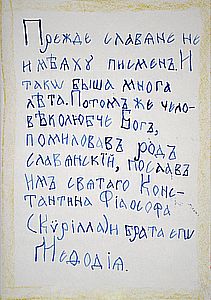 Прежде славяне не
имѣяху писменъ. И
такѡ быша многа
лѣта. Потомъ же чело-
вѣколюбче Богъ,
помиловавъ родъ
славянскій, пославъ
имъ святаго Конс-
тантина Філософа
(Кѷрілла) и брата епи
Меѳодія.